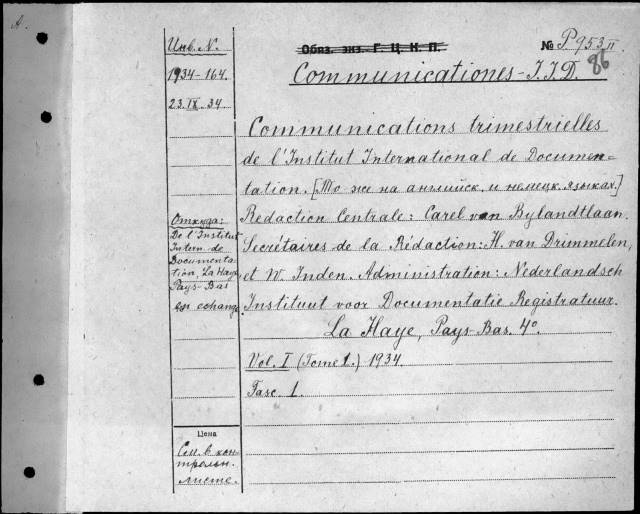 А.
Инв. N.
1934-164.
23.IX.34.
Обяз. экз. Г. Ц. К. П.
№ P 953 II
86
Communicationes-I.I.D.
Communications trimestrielles
de l'Institut International de Documen=
tation. [То же на английск. и немецк. языках.]
Rédaction Centrale: Carel van Bylandtlaan.
Secrétaires de la Rédaction: H. van Drimmelen,
et W. Inden. Administration: Nederlandsch
Instituut voor Documentatie Registratuur.
La Haye, Pays-Bas. 4°.
Vol. I (Tome 1.) 1934.
Fasc. 1.
Откуда:
De l'Institut
Intern. de
Documenta-
tion, La Haye
Pays-Bas
en echange
Цена
См. в кон-
трольн.
листе.